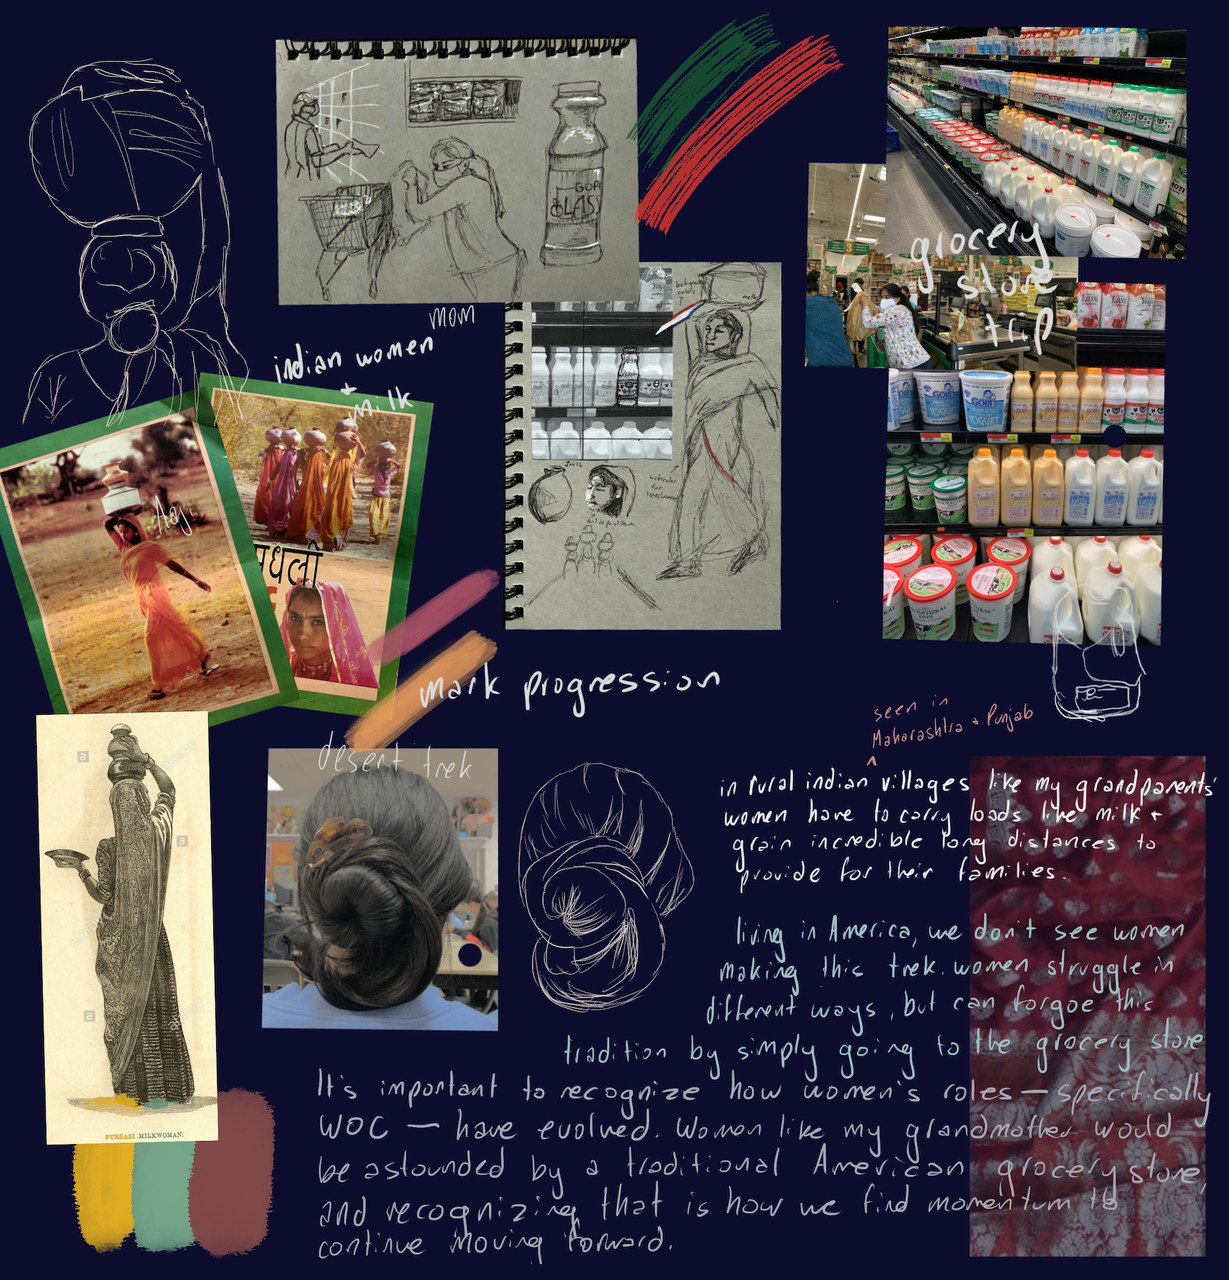 GOPI
LASSI
grocery
store
trip
3
mom
indian women
+
milk
Aaji
मधली
milk
GOPI
YOGURT
Lassi
mark progression
desert trek
seen in
Maharashtra + Punjab
^
in rural indian villages like my grandparents'
women have to carry loads like milk +
grain incredible long distances to
provide for their families.
living in America, we don't see women
making this trek. women struggle in
different ways, but can forgoe this
tradition by simply going to the grocery store
It's important to recognize how women's roles — specifically
WOC — have evolved. Women like my grandmother would
be astounded by a traditional American grocery store,
and recognizing that is how we find momentum to
continue moving forward.
PURDASI MILKWOMAN.
a
alamy